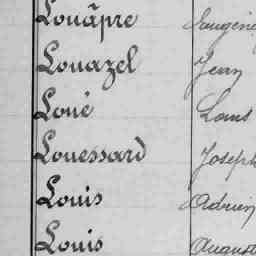 Louâpre Eugène
Louazel Jean
Loué Louis
Louessard Joseph
Louis Adrien
Louis August